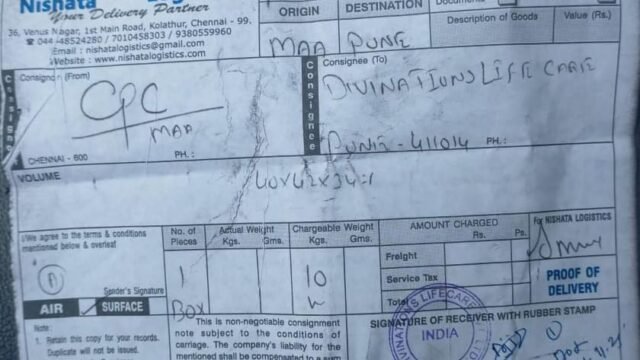 Nishata
Your Delivery Partner
36, Venus Nagar, 1st Main Road, Kolathur, Chennai - 99.
044-48524280 / 7010458303 / 9380559960
Email : nishatalogistics@gmail.com
Website : www.nishatalogistics.com
ORIGIN
MAA
DESTINATION
PUNE
Description of Goods
Value (Rs.)
Consignor (From)
CPC
MAA
CHENNAI - 600
PH.:
Consignee
Consignee (To)
DIVINATIONS LIFE CARE
PUNE - 411014
PH.:
VOLUME
40x42x34=1
I/We agree to the terms & conditions
mentioned below & overleaf
Sender's Signature
AIR
SURFACE
No. of
Pieces
1
BOX
Actual Weight
Kgs. Gms.
Chargeable Weight
Kgs. Gms.
10
AMOUNT CHARGED
Rs. Ps.
Freight
Service Tax
Total
For NISHATA LOGISTICS
PROOF OF
DELIVERY
Note :
1. Retain this copy for your records.
Duplicate will not be issued.
This is non-negotiable consignment
note subject to the conditions of
carriage. The company's liability for
the mentioned shall be compensated to a
SIGNATURE OF RECEIVER WITH RUBBER STAMP
INDIA